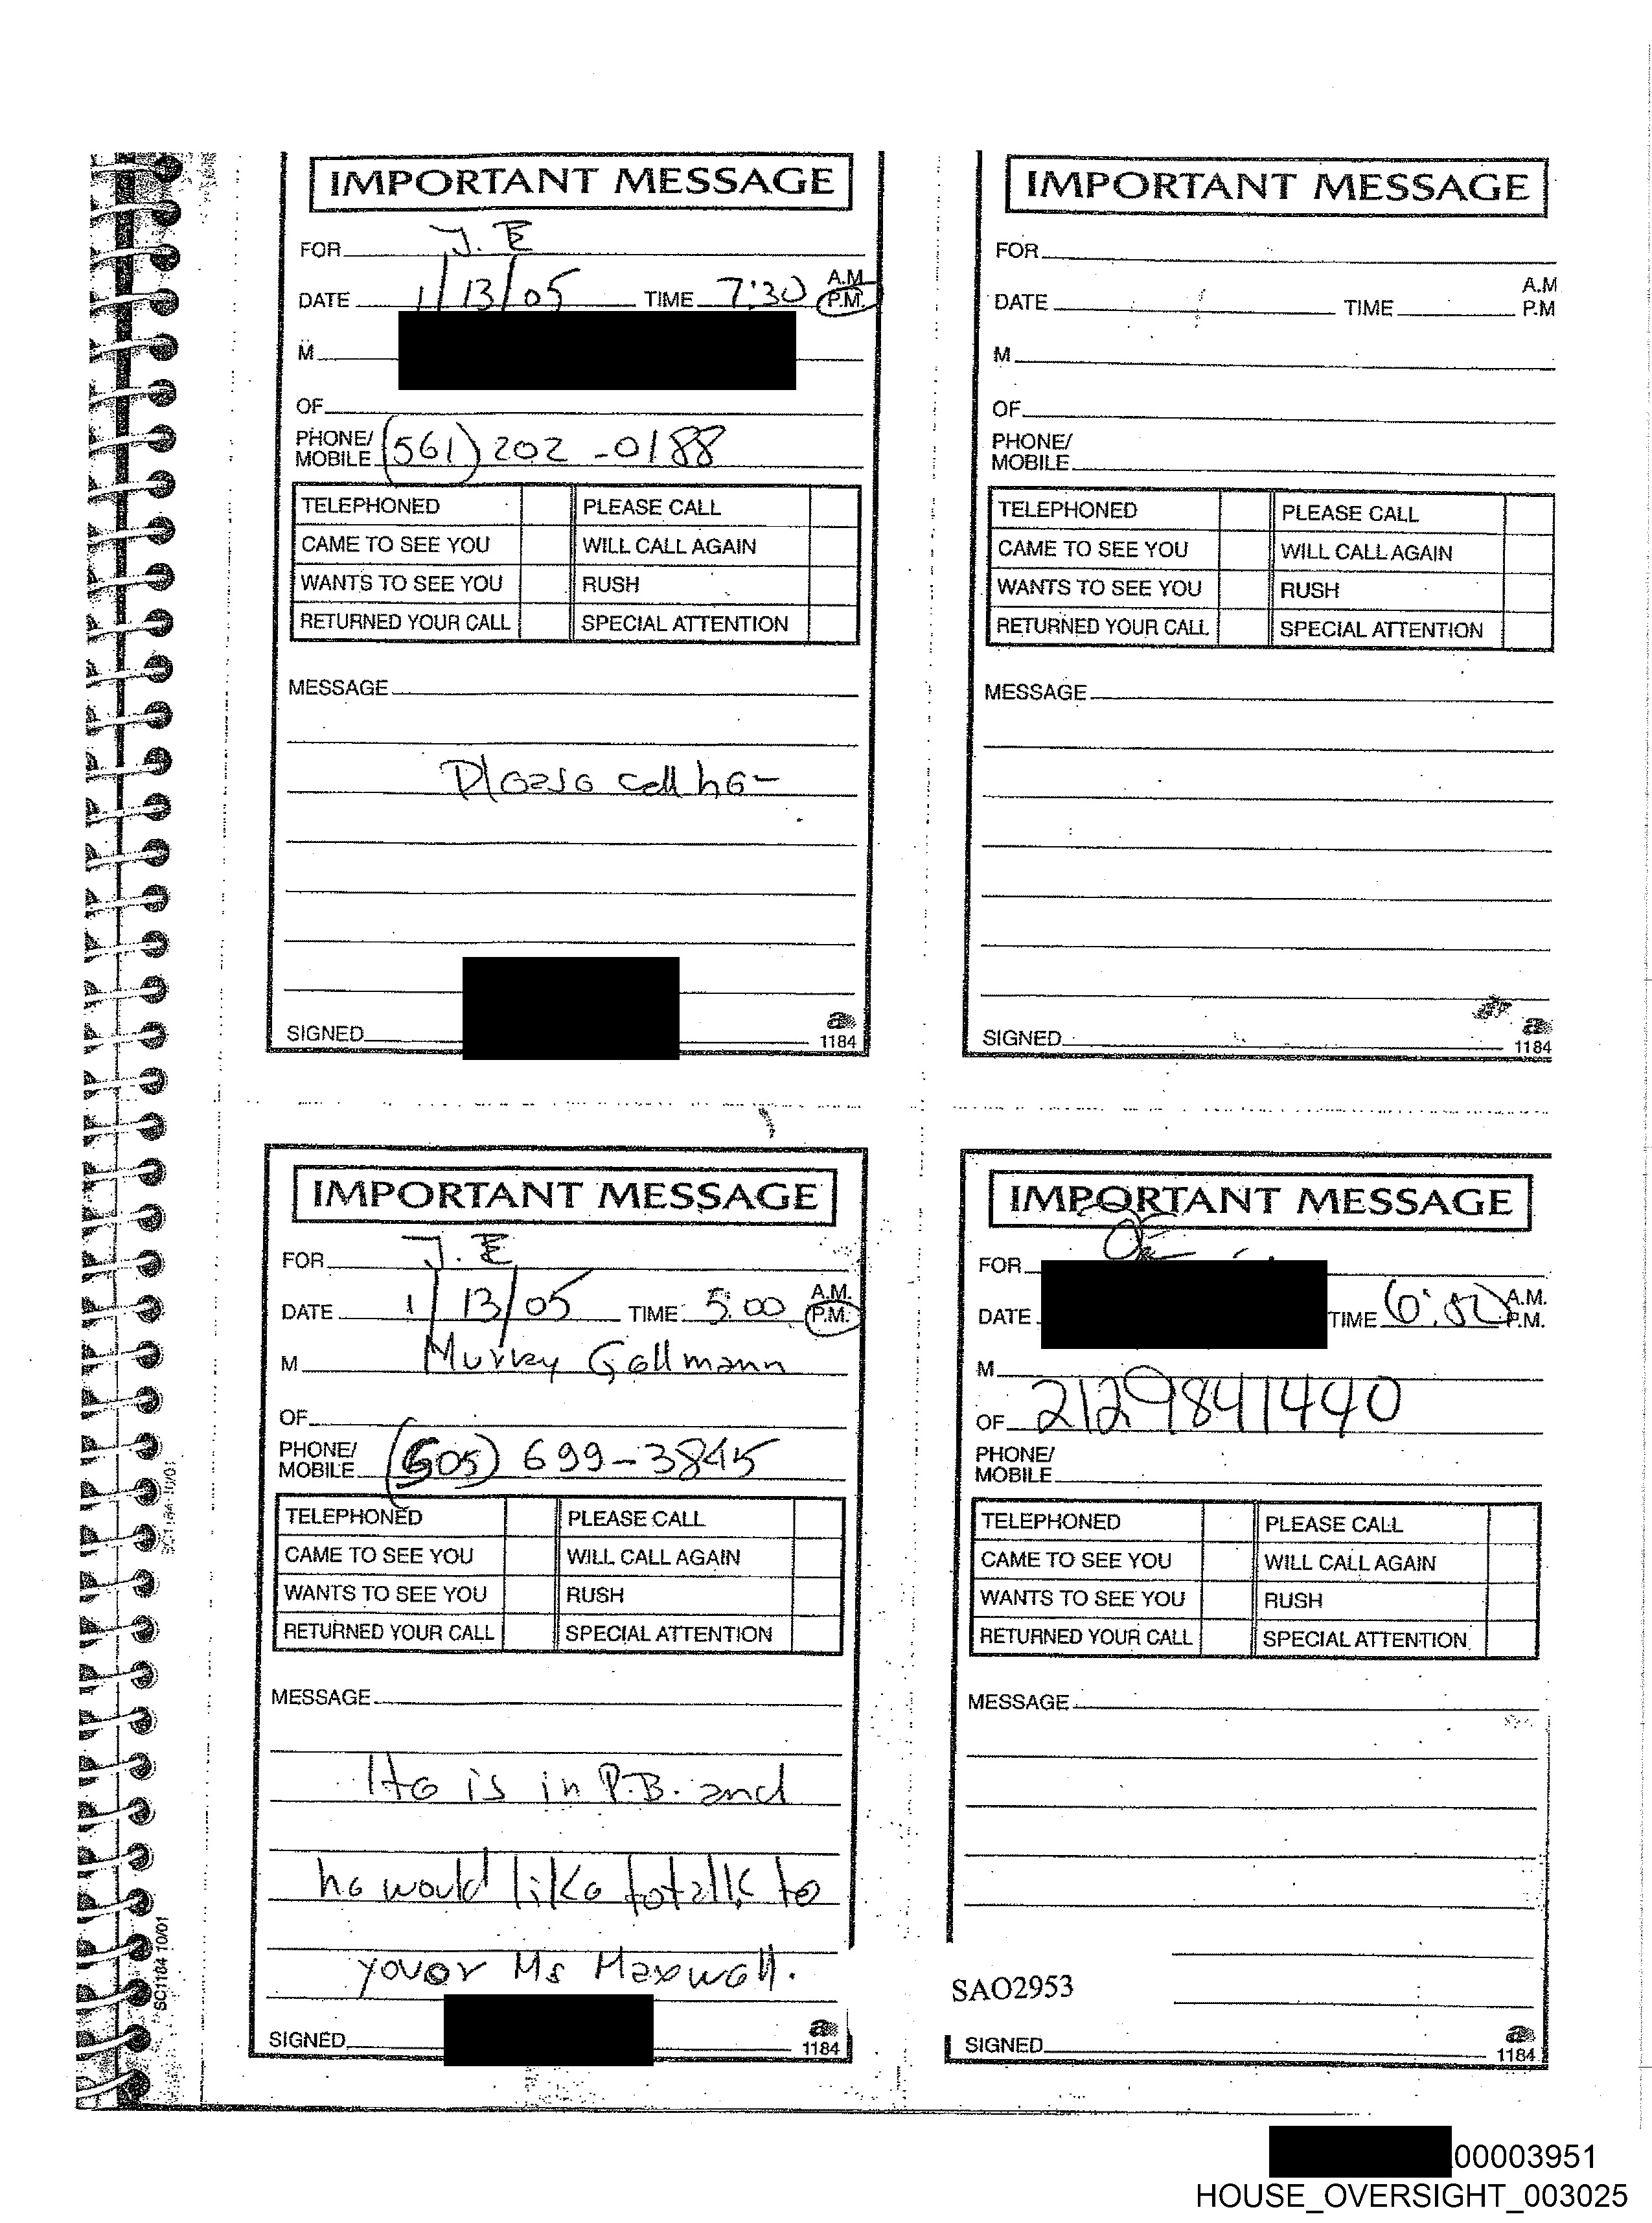 IMPORTANT MESSAGE
FOR J. E
DATE 1/13/05 TIME 7:30 A.M. P.M.
M
OF
PHONE/ MOBILE (561) 202-0188
TELEPHONED PLEASE CALL
CAME TO SEE YOU WILL CALL AGAIN
WANTS TO SEE YOU RUSH
RETURNED YOUR CALL SPECIAL ATTENTION
MESSAGE
Please call her
SIGNED
1184
IMPORTANT MESSAGE
FOR
DATE TIME A.M P.M
M
OF
PHONE/ MOBILE
TELEPHONED PLEASE CALL
CAME TO SEE YOU WILL CALL AGAIN
WANTS TO SEE YOU RUSH
RETURNED YOUR CALL SPECIAL ATTENTION
MESSAGE
SIGNED
1184
IMPORTANT MESSAGE
FOR J. E
DATE 1/13/05 TIME 5:00 A.M. P.M.
M Murray Gellmann
OF
PHONE/ MOBILE (505) 699-3845
TELEPHONED PLEASE CALL
CAME TO SEE YOU WILL CALL AGAIN
WANTS TO SEE YOU RUSH
RETURNED YOUR CALL SPECIAL ATTENTION
MESSAGE
He is in P.B. and
he would like to talk to
you or Ms Maxwell.
SIGNED
1184
SC1184 10/01
IMPORTANT MESSAGE
FOR
DATE TIME A.M. P.M.
M
OF 2129841440
PHONE/ MOBILE
TELEPHONED PLEASE CALL
CAME TO SEE YOU WILL CALL AGAIN
WANTS TO SEE YOU RUSH
RETURNED YOUR CALL SPECIAL ATTENTION
MESSAGE
SAO2953
SIGNED
1184
00003951
HOUSE_OVERSIGHT_003025